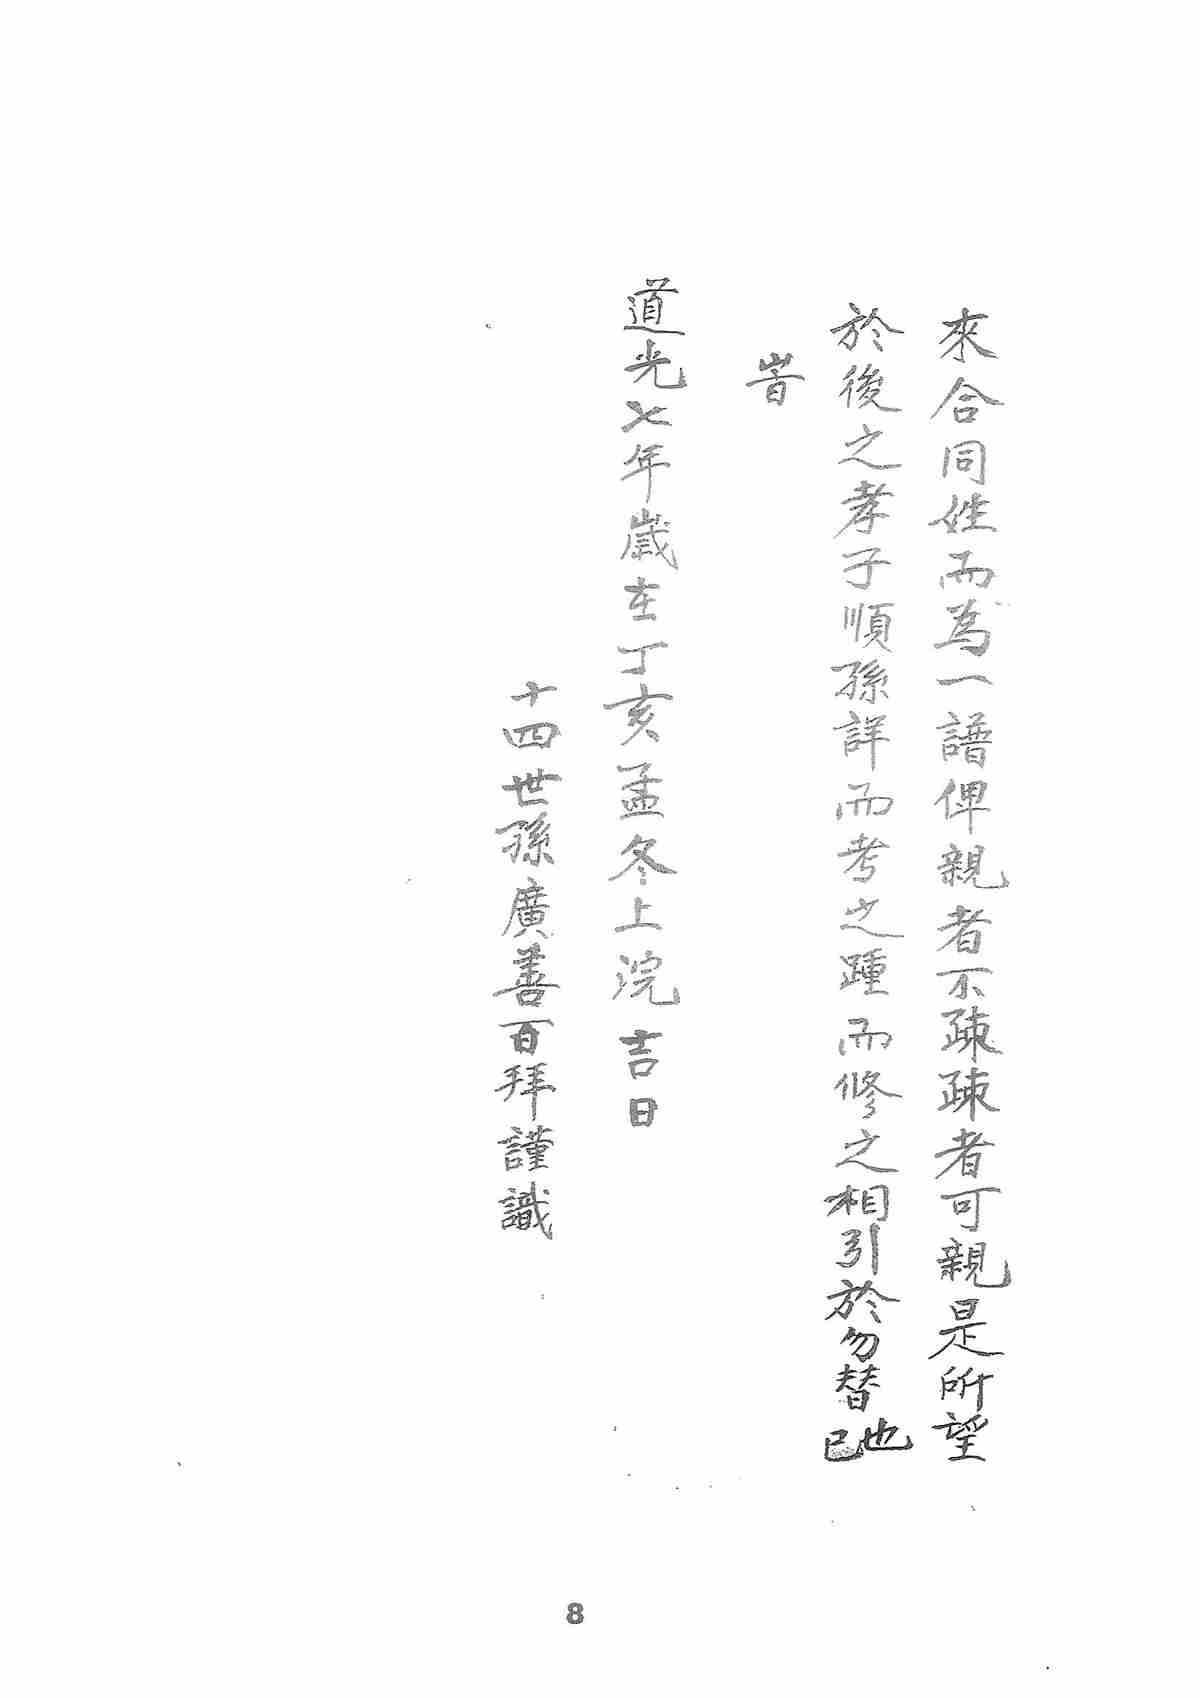 來合同姓而為一譜俾親者不疎疎者可親是所望
於後之孝子順孫詳而考之踵而修之相引於勿替也已
旹
道光七年歲在丁亥孟冬上浣吉日
十四世孫廣善百拜謹識
8